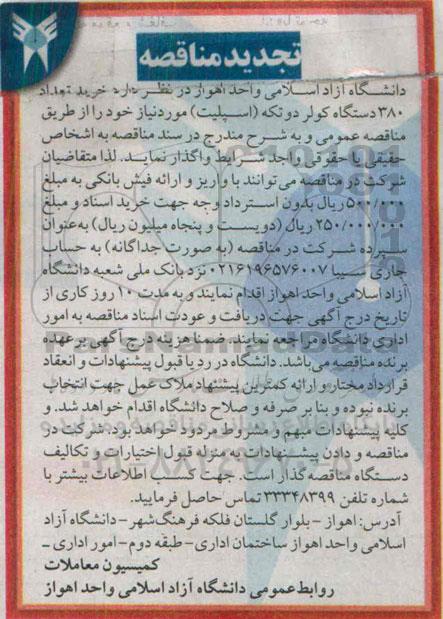 تجدید مناقصه
دانشگاه آزاد اسلامی واحد اهواز در نظر دارد خرید تعداد
۳۸۰ دستگاه کولر دوتکه (اسپلیت) موردنیاز خود را از طریق
مناقصه عمومی و به شرح مندرج در سند مناقصه به اشخاص
حقیقی یا حقوقی واجد شرایط واگذار نماید. لذا متقاضیان
شرکت در مناقصه می توانند با واریز و ارائه فیش بانکی به مبلغ
۵۰۰/۰۰۰ ریال بدون استرداد وجه جهت خرید اسناد و مبلغ
۲۵۰/۰۰۰/۰۰۰ ریال (دویست و پنجاه میلیون ریال) به‌عنوان
سپرده شرکت در مناقصه (به صورت جداگانه) به حساب
جاری سیبا ۰۲۱۶۱۹۶۵۷۶۰۰۷ نزد بانک ملی شعبه دانشگاه
آزاد اسلامی واحد اهواز اقدام نمایند و به مدت ۱۰ روز کاری از
تاریخ درج آگهی جهت دریافت و عودت اسناد مناقصه به امور
اداری دانشگاه مراجعه نمایند. ضمنا هزینه درج آگهی برعهده
برنده مناقصه می‌باشد. دانشگاه در رد یا قبول پیشنهادات و انعقاد
قرارداد مختار و ارائه کمترین پیشنهاد ملاک عمل جهت انتخاب
برنده نبوده و بنا بر صرفه و صلاح دانشگاه اقدام خواهد شد. و
کلیه پیشنهادات مبهم و مشروط مردود خواهد بود. شرکت در
مناقصه و دادن پیشنهادات به منزله قبول اختیارات و تکالیف
دستگاه مناقصه گذار است. جهت کسب اطلاعات بیشتر با
شماره تلفن ۳۳۳۴۸۳۹۹ تماس حاصل فرمایید.
آدرس: اهواز – بلوار گلستان فلکه فرهنگ‌شهر – دانشگاه آزاد
اسلامی واحد اهواز ساختمان اداری – طبقه دوم – امور اداری –
کمیسیون معاملات
روابط عمومی دانشگاه آزاد اسلامی واحد اهواز